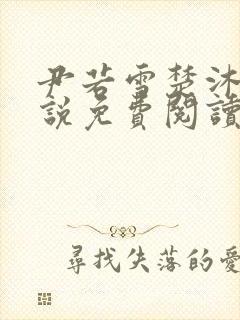 尹若雪楚沐
說免費閱讀
尋找失落的愛